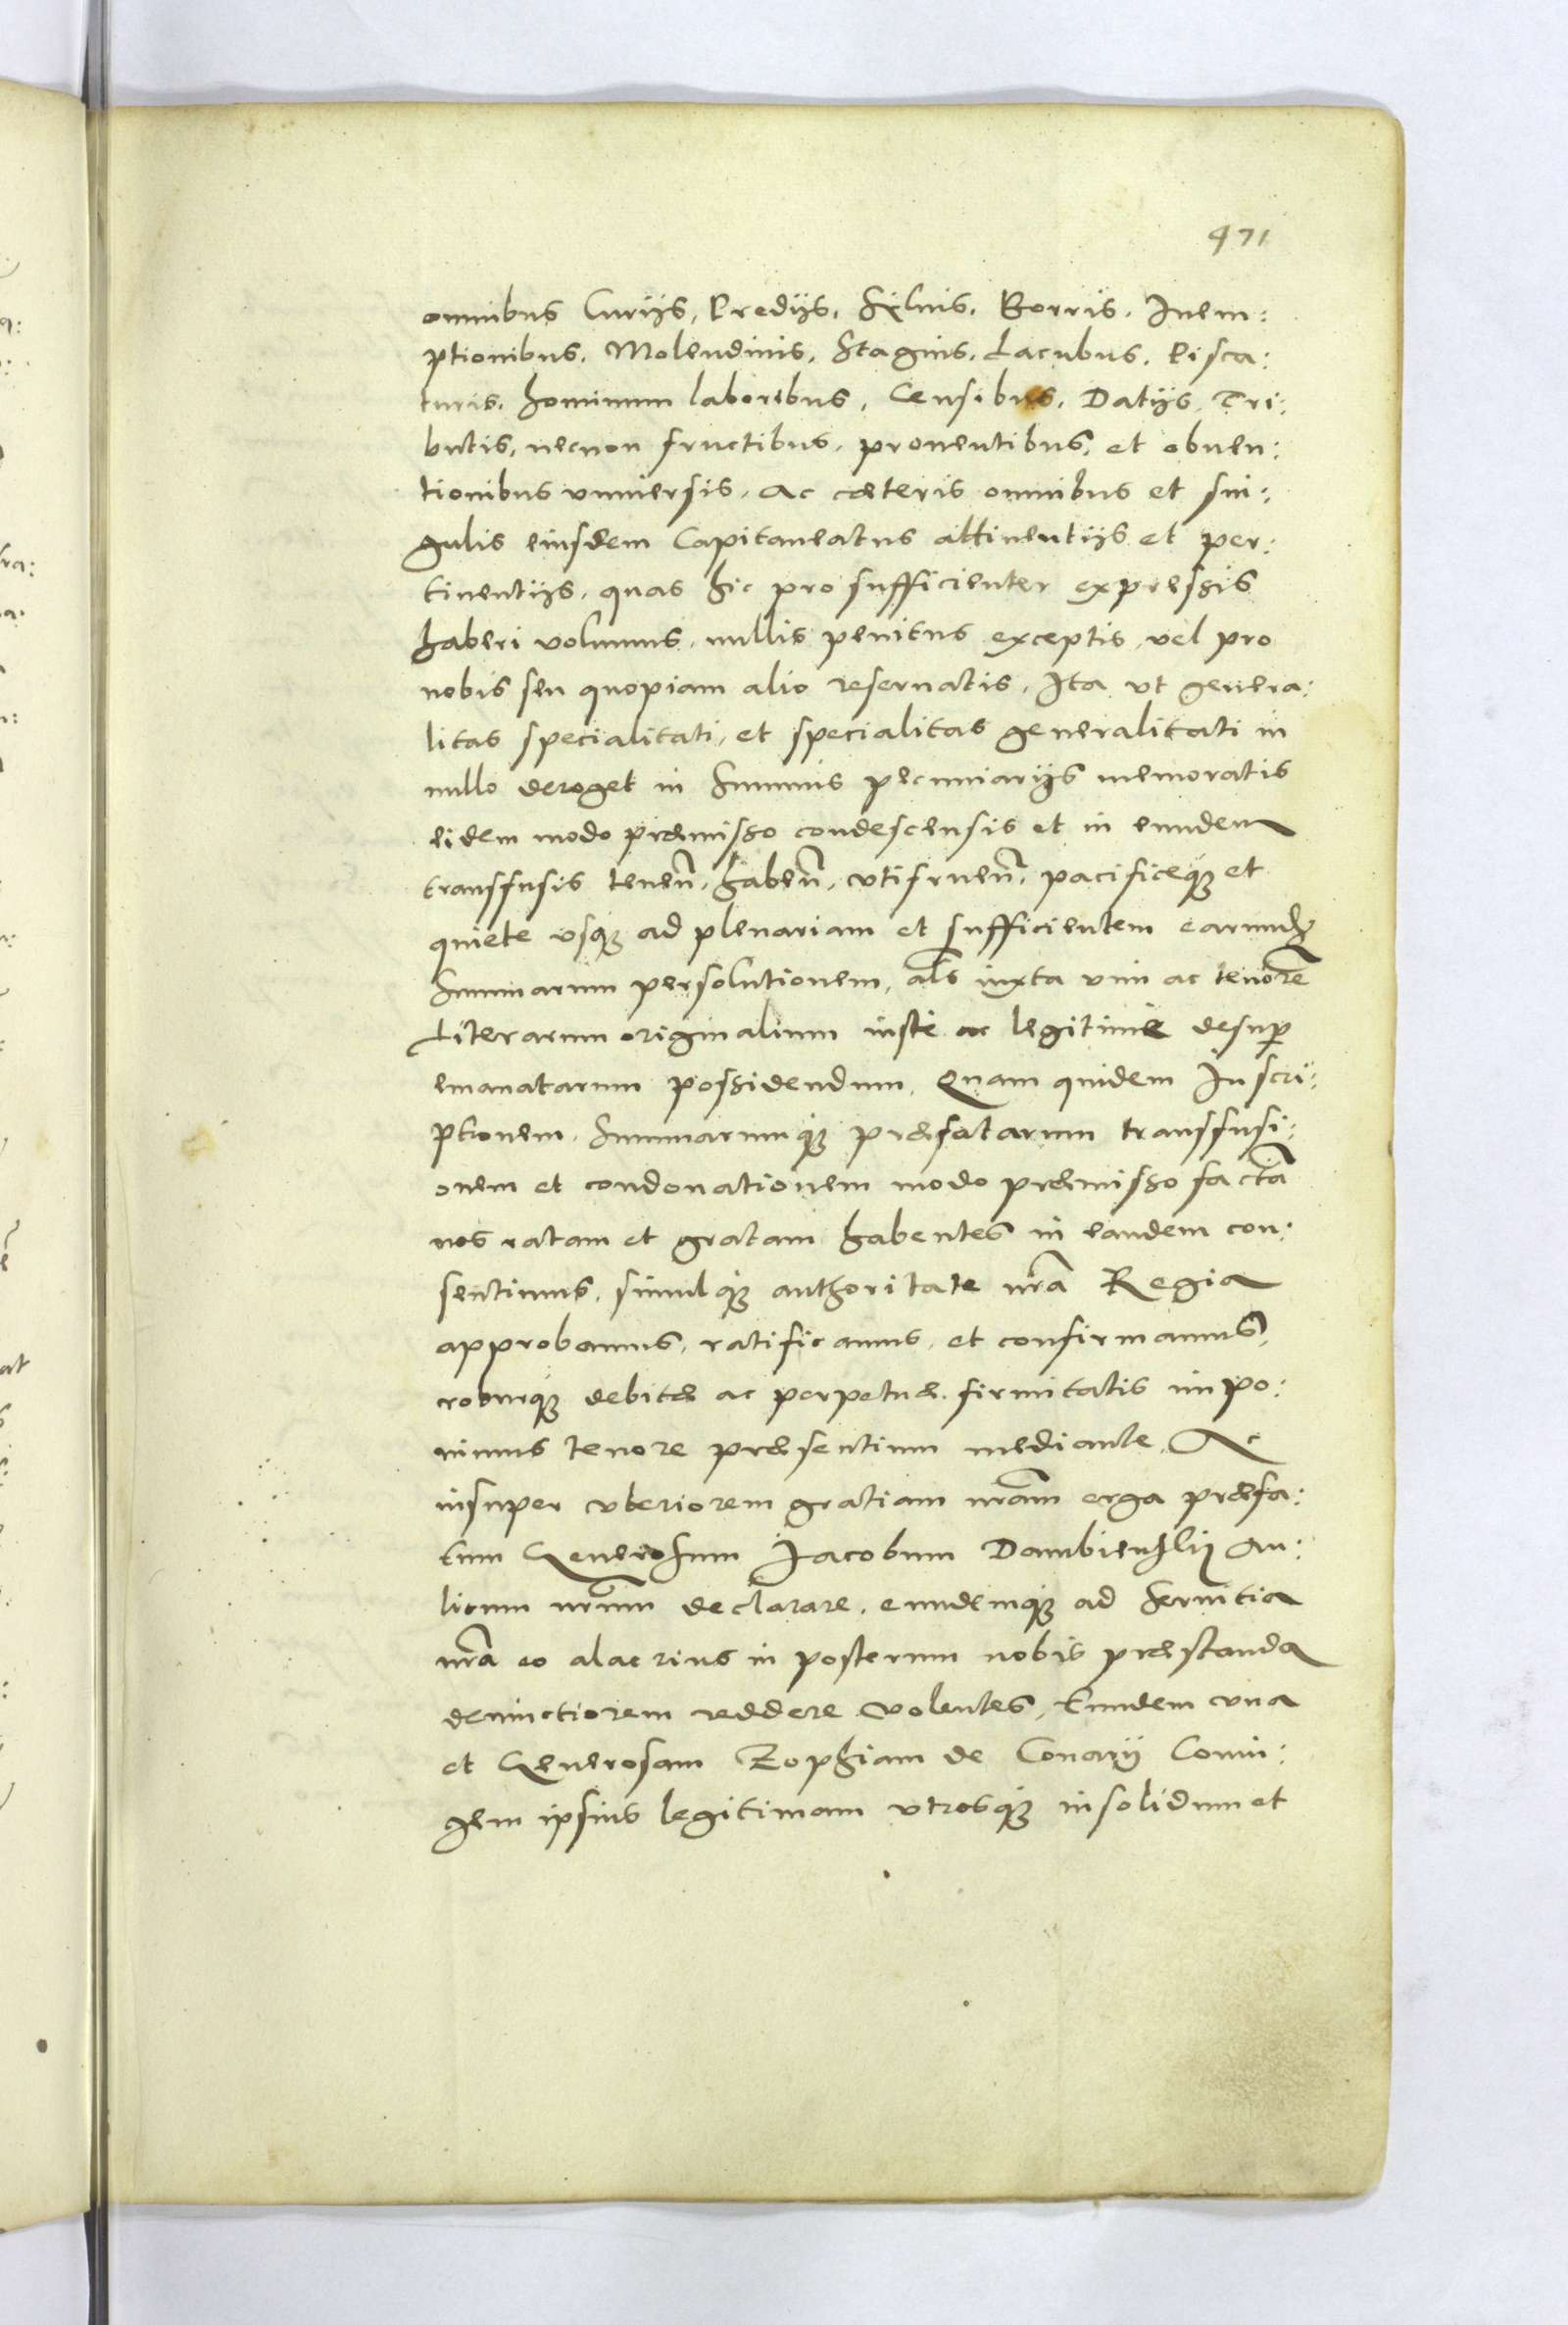 471
omnibus Curijs, Predijs, Sylvis, Borris, Inem:
ptionibus, Molendinis, Stagnis, Lacubus, Pisca:
turis, hominum laboribus, Censibus, Datijs, Tri:
butis, necnon fructibus, proventibus, et obven:
tionibus universis, Ac cæteris omnibus et sin:
gulis eiusdem Capitaneatus attinentijs et per:
tinentijs, quas hic pro sufficienter expressis
haberi volumus, nullis penitus exceptis, vel pro
nobis seu quopiam alio reservatis, Ita ut genera:
litas specialitati, et specialitas generalitati in
nullo deroget in Summis pecuniarijs memoratis
eidem modo præmisso condescensis et in eundem
transfusis tenen̄, haben̄, utifruen̄, pacificeq́ꝫ et
quiete usqꝫ ad plenariam et sufficientem earundꝫ
Summarum persolutionem, als̄ iuxta vim ac tenorē
Literarum originalium iuste ac legitime desup̱
emanatarum possidendum, Quam quidem Inscri:
ptionem, Summarumqꝫ præfatarum transfusi:
onem et condonationem modo præmisso factā
nos ratam et gratam habentes in eandem con:
sentimus, simulqꝫ authoritate nr̄a Regia
approbamus, ratificamus, et confirmamus,
roburq́ꝫ debitæ ac perpetuæ firmitatis impo:
nimus tenore præsentium mediante, Ac
insuper uberiorem gratiam nr̄am erga præfa:
tum Generosum Jacobum Dambienskij Au:
licum nr̄um declarare, eundemqꝫ ad servitia
nr̄a eo alacrius in posterum nobis præstanda
devinctiorem reddere volentes, Eundem una
et Generosam Zophiam de Conarij Coniu:
gem ipsius legitimam utrosqꝫ insolidum et